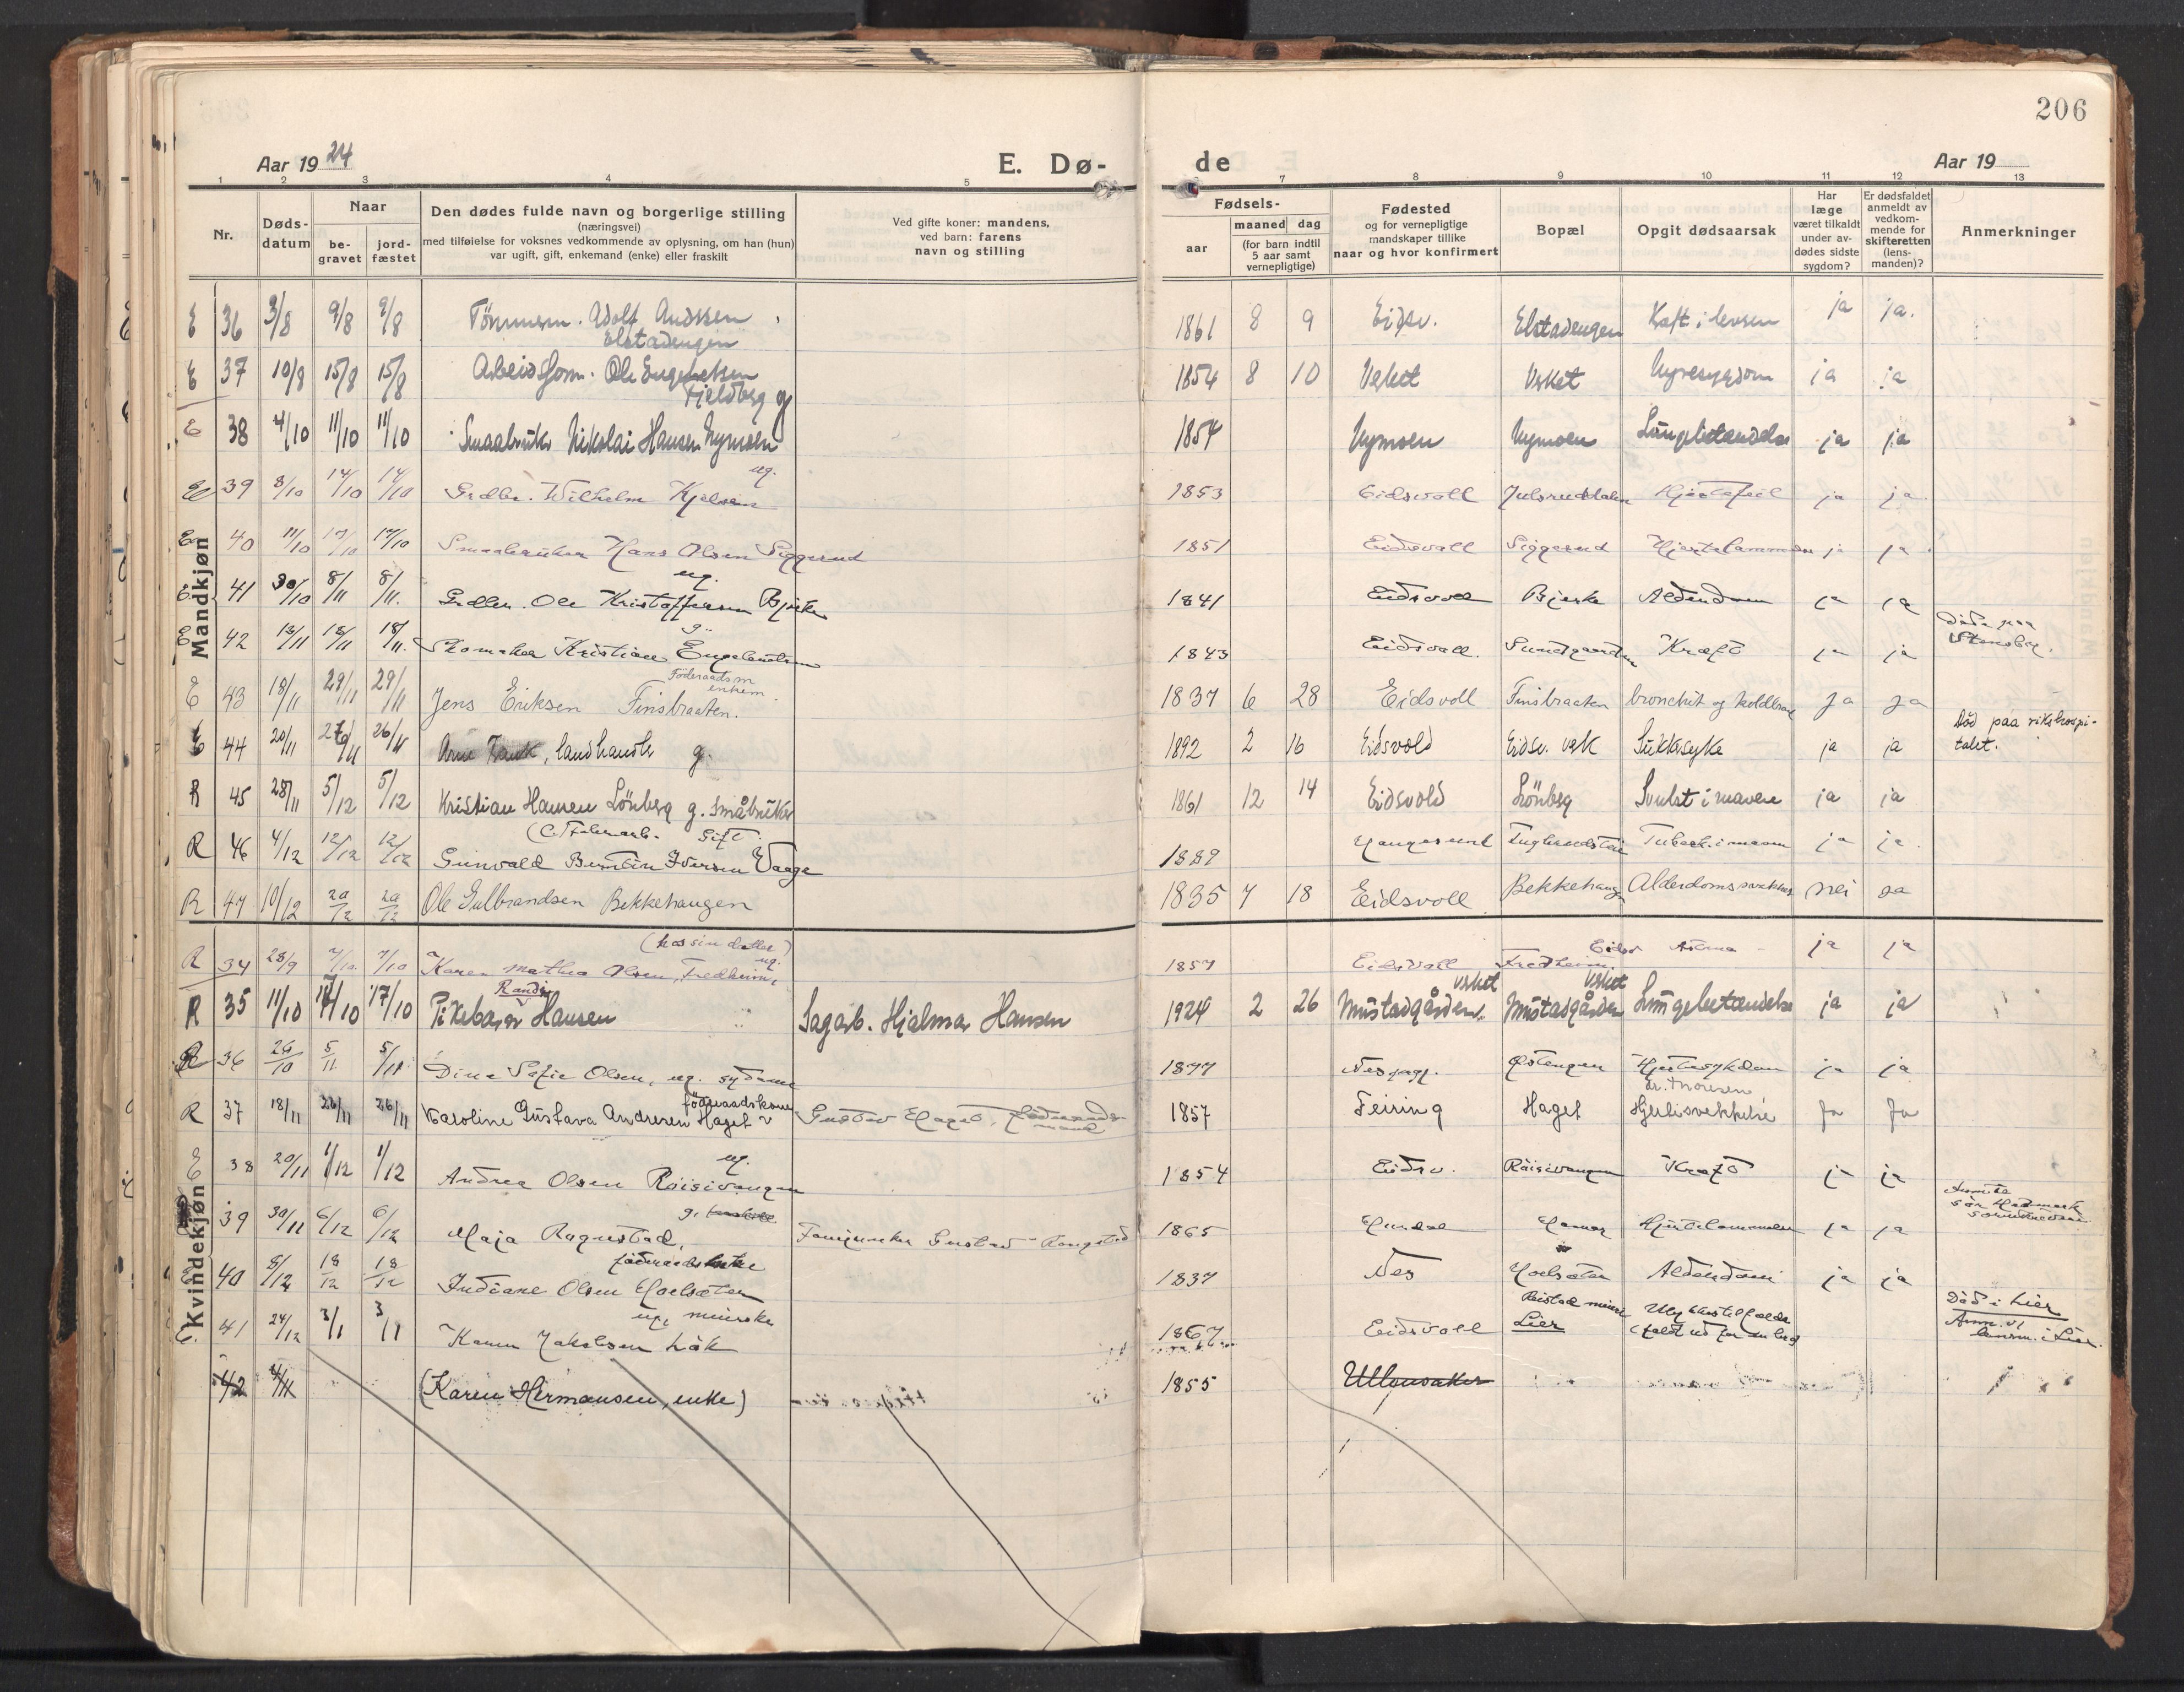 206
Aar 1924
E. Dø-
de
Aar 19
1 2 3 4 5 7 8 9 10 11 12 13
Nr.
Døds-
datum
Naar
be-
gravet
jord-
fæstet
Den dødes fulde navn og borgerlige stilling
(næringsvei)
med tilføielse for voksnes vedkommende av oplysning, om han (hun)
var ugift, gift, enkemand (enke) eller fraskilt
Ved gifte koner: mandens,
ved barn: farens
navn og stilling
Fødsels-
aar
maaned dag
(for barn indtil
5 aar samt
vernepligtige)
Fødested
og for vernepligtige
mandskaper tillike
naar og hvor konfirmert
Bopæl
Opgit dødsaarsak
Har
læge
været tilkaldt
under av-
dødes sidste
sygdom?
Er dødsfaldet
anmeldt av
vedkom-
mende for
skifteretten
(lens-
manden)?
Anmerkninger
Mandkjøn
E 36 3/8 9/8 9/8 Tömmerm. Adolf Andersen
Elstadengen
1861 8 9 Eidsv. Elstadengen Kræft i leveren ja ja.
E 37 10/8 15/8 15/8 Arbeidsform. Ole Engebretsen
Fjeldberg g
1854 8 10 Verket Verket Nyresygdom ja ja
E 38 4/10 11/10 11/10 Smaabruker Nikolai Hansen Nymoen
1854 Nymoen Nymoen Lungebetændelse ja ja
ug.
E 39 8/10 14/10 14/10 Grdbr. Wilhelm Kjelsen
1853 Eidsvoll Julsruddalen Hjertefeil ja ja
E 40 11/10 17/10 17/10 Smaabruker Hans Olsen Siggerud
1851 Eidsvoll Siggerud Hjertelammelse ja ja
ug.
E 41 30/10 8/11 8/11. Grdbr. Ole Kristoffersen Bjerke
1841 Eidsvoll Bjerke Alderdom ja ja
g.
E 42 13/11 18/11 18/11. Skomaker Kristian Engebretsen
1843 Eidsvoll. Sundgaarden Kræft ja ja
Döde paa
Stensby.
Föderaadsm
enkem.
E 43 18/11 29/11 29/11 Jens Eriksen Finsbraaten.
1837 6 28 Eidsvoll Finsbraaten bronchit og koldbrand ja ja
E 44 20/11 26/11 26/11 Arne , landhandler g.
1892 2 16 Eidsvold Eidsv. verk Sukkersyke ja ja
död paa rikshospi-
talet.
R 45 28/11 5/12 5/12 Kristian Hansen Lönberg g. småbruker
1861 12 14 Eidsvold Lönberg Svulst i maven ja ja
Gift.
R 46 4/12 12/12 12/12 Gunvald Berntin Iversen Vaage
1889 Haugesund ja ja.
R 47 10/12 20/12 20/12 Ole Gulbrandsen Bekkehaugen
1835 7 18 Eidsvoll Bekkehaugen Alderdomssvakhet nei ja
Kvindekjøn
(hos sin datter)
ug.
R 34 28/9 7/10 7/10 Karen Mathea Olsen, Fredheim,
1857 Eidsvoll Fredheim. Eidsv Astma ja ja
Randi
R 35 11/10 17/10 17/10 Pikebarn Hansen
Sagarb. Hjalmar Hansen
1924 2 26 Mustadgården. Verket Mustadgården Verket Lungebetændelse ja ja
R 36 26/10 5/11 5/11 Dina Sofie Olsen, ug. sydame
1877 Nes Østengen Hjertesykdom ja ja
föderaadskone
R 37 18/11 26/11 26/11 Karoline Gustava Andresen Haget
Gustav Haget, föderaads-
mand
1857 Feiring Haget Hjertesvekkelse ja ja
ug.
E 38 20/11 1/12 1/12 Andrea Olsen Röisivangen
1854 Eidsv. Röisivangen Kræft ja ja
g.
39 30/11 6/12 6/12 Maja Rognstad,
Gustav Rognstad
1865 Hurdal Hamar Hjertelammelse ja ja
föderaadsenke
E 40 8/12 18/12 18/12 Indiane Olsen Hoelsæter
1837 Nes Hoelsæter Alderdom ja ja
ug.
E. 41 24/12 3/1 3/1 Karen Jakobsen Låk
1867 Eidsvoll Reistad Lier Ulykkestilfælde
Död i Lier
Anm. v/
lensm. i Lier.
42 (Karen Hermansen, enke)
1855 Ullensaker